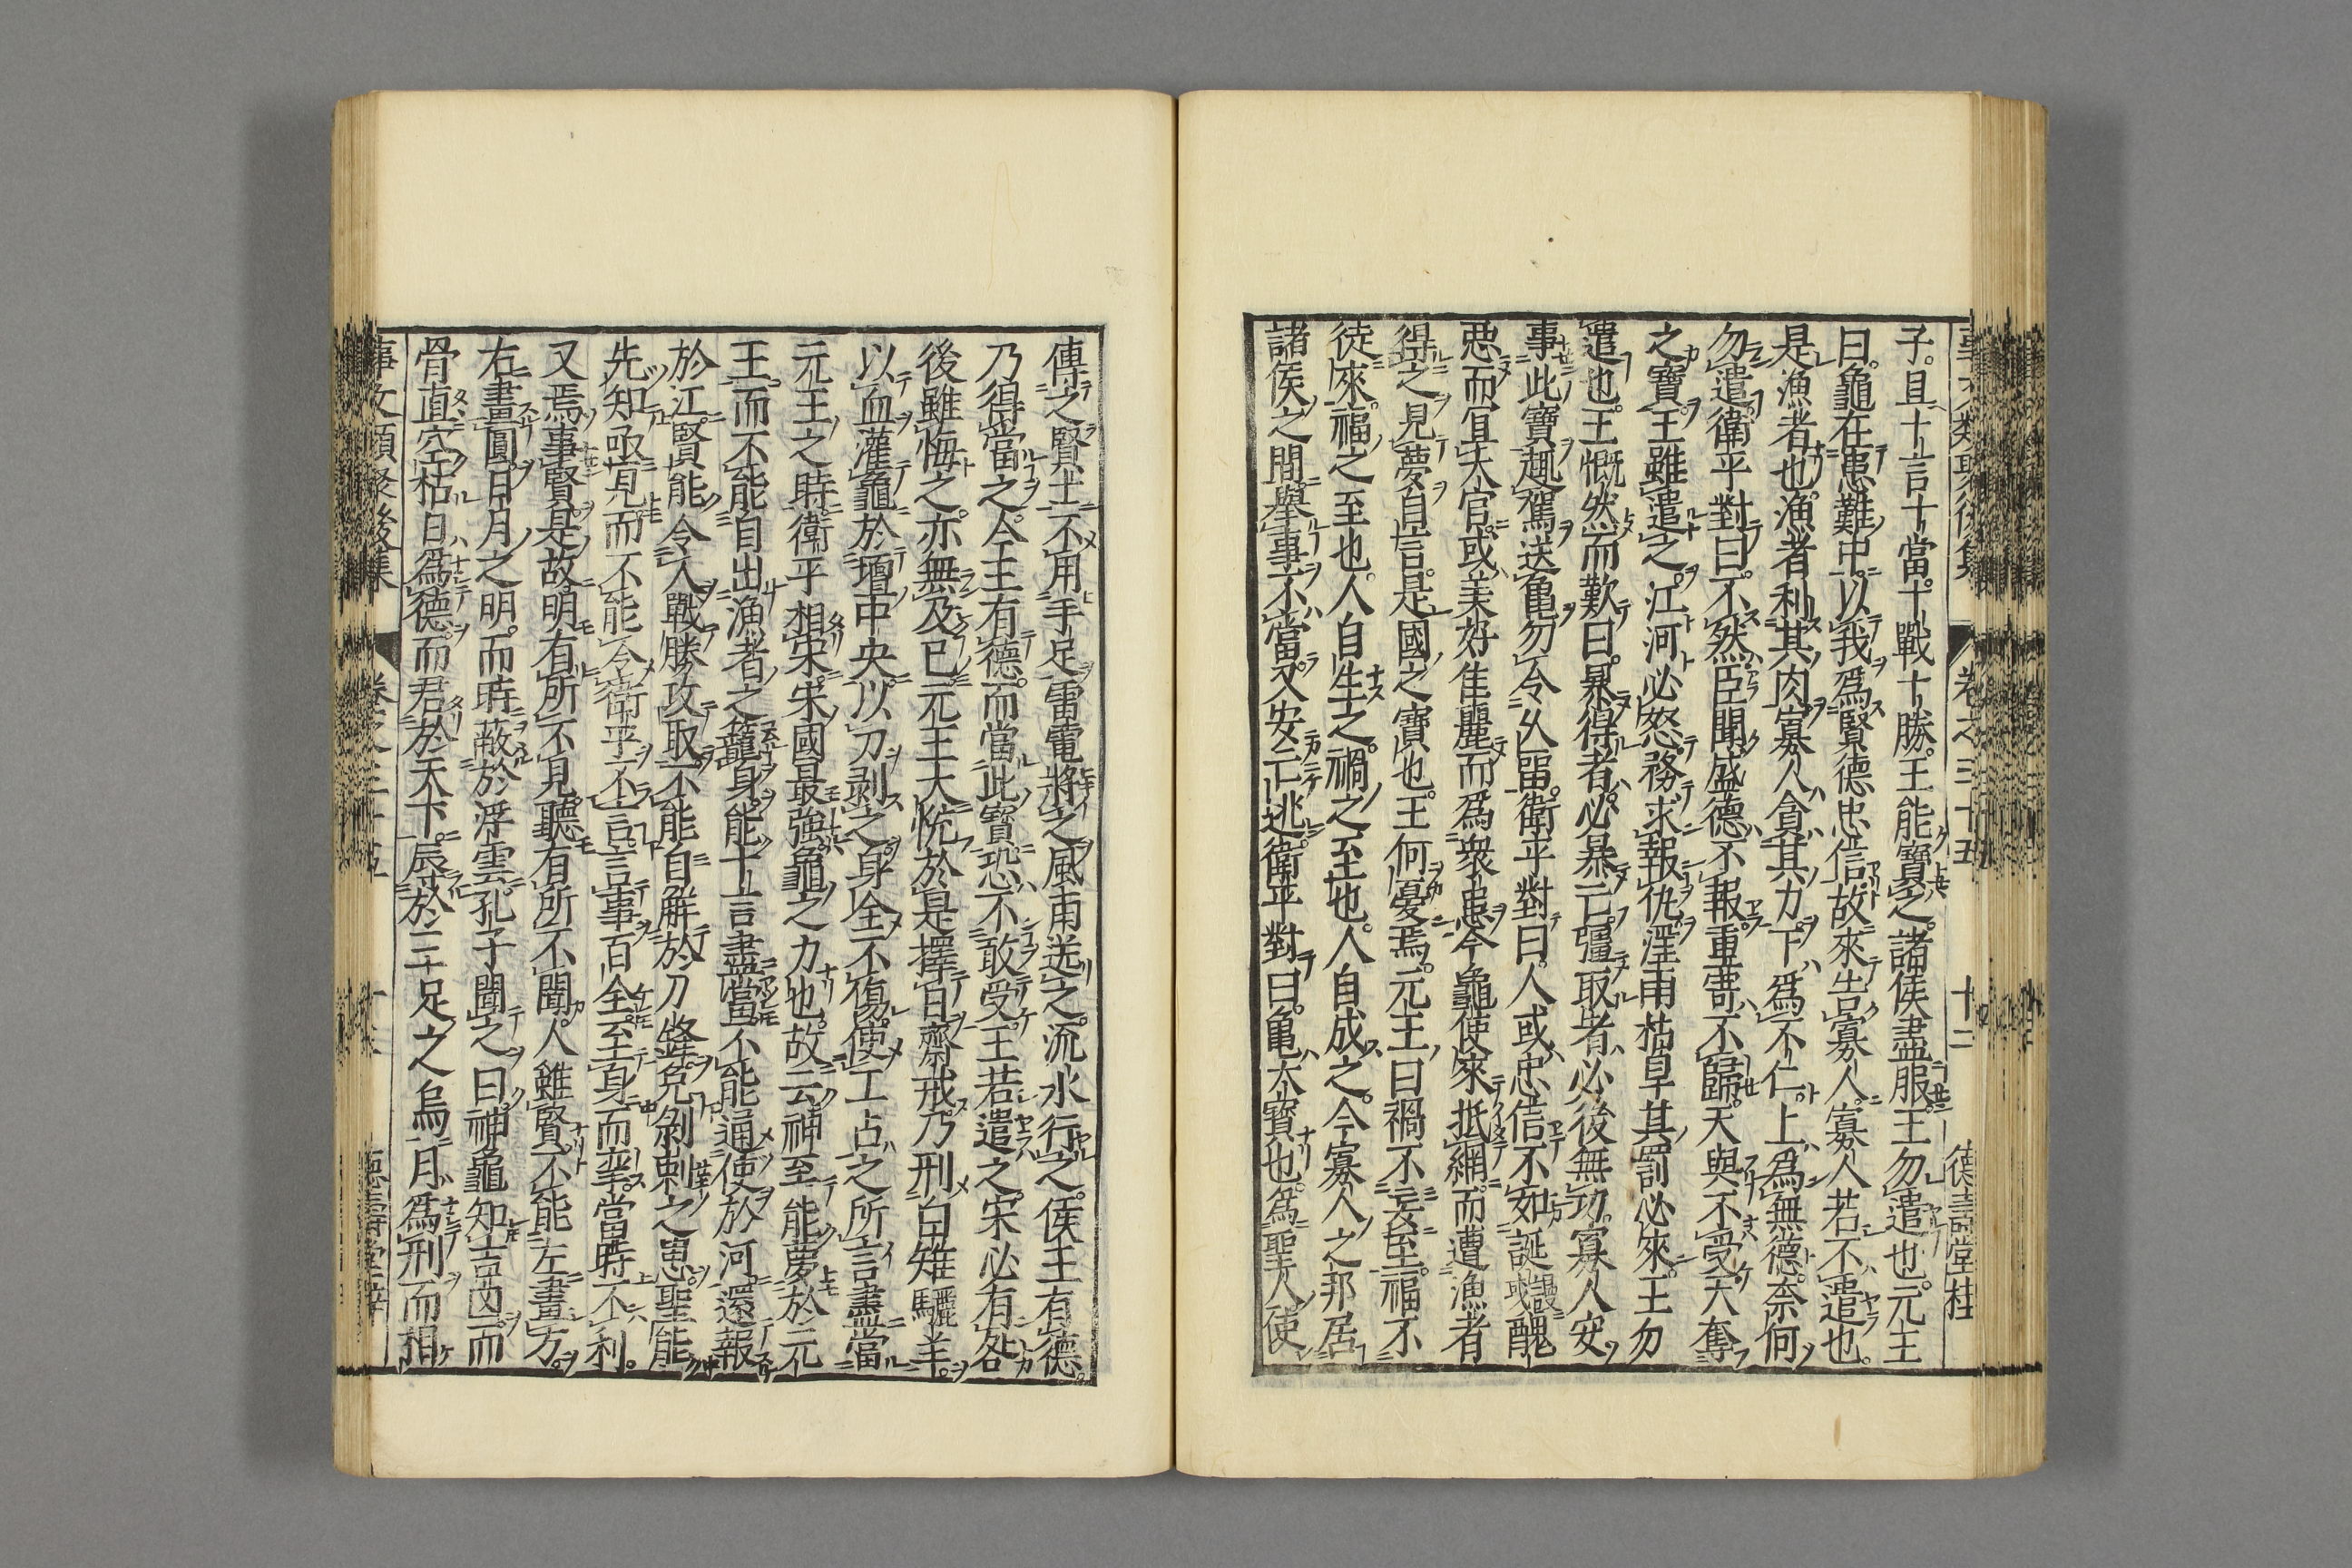 子。且十言十當。十戰十勝。王能寶之。諸侯盡服。王勿遣也。元王
曰。龜在患難中。以我爲賢德忠信。故來告寡人。寡人若不遣也。
是漁者也。漁者利其肉。寡人貪其力。下爲不仁。上爲無德。奈何
勿遣。衛平對曰。不然。臣聞盛德不報。重寄不歸。天與不受。天奪
之寶。王雖遣之。江河必怒。務求報仇。淫雨枯旱。其罰必來。王勿
遣也。王慨然而歎曰。暴得者。必暴亡。彊取者。必後無功。寡人安
事此寶。趣駕送龜。勿令久留。衛平對曰。人或忠信。不如誕謾。或醜
惡而宜大官。或美好佳麗而爲衆患。今龜使來抵網。而遭漁者
得之。見夢自言。是國之寶也。王何憂焉。元王曰。禍不妄至。福不
徒來。福之至也。人自生之。禍之至也。人自成之。今寡人之邦。居
諸侯之間。舉事不當。又安亡逃。衛平對曰。龜大寶也。爲聖人使。
傳之賢士。不用手足。雷電將之。風雨送之。流水行之。侯王有德。
乃得當之。今王有德。而當此寶。恐不敢受。王若遣之。宋必有咎。
後雖悔之。亦無及已。元王大悅。於是擇日齋戒。乃刑白雉驪羊。
以血灌龜。於壇中央。以刀剥之。身全不傷。使工占之。所言盡當。
元王之時。衛平相宋。宋國最強。龜之力也。故云神至能夢於元
王。而不能自出漁者之籠。身能十言盡當。不能通使於河。還報
於江。賢能令人戰勝攻取。不能自解於刀鋒。免剥刺之患。聖能
先知亟見。而不能令衛平不言。言事百全。至身而攣。當時不利。
又焉事賢。是故明有所不見。聽有所不聞。人雖賢。不能左畫方。
右畫圓。日月之明。而時蔽於浮雲。孔子聞之曰。神龜知吉凶。而
骨直空枯。日爲德。而君於天下。辱於三足之烏。月爲刑。而相